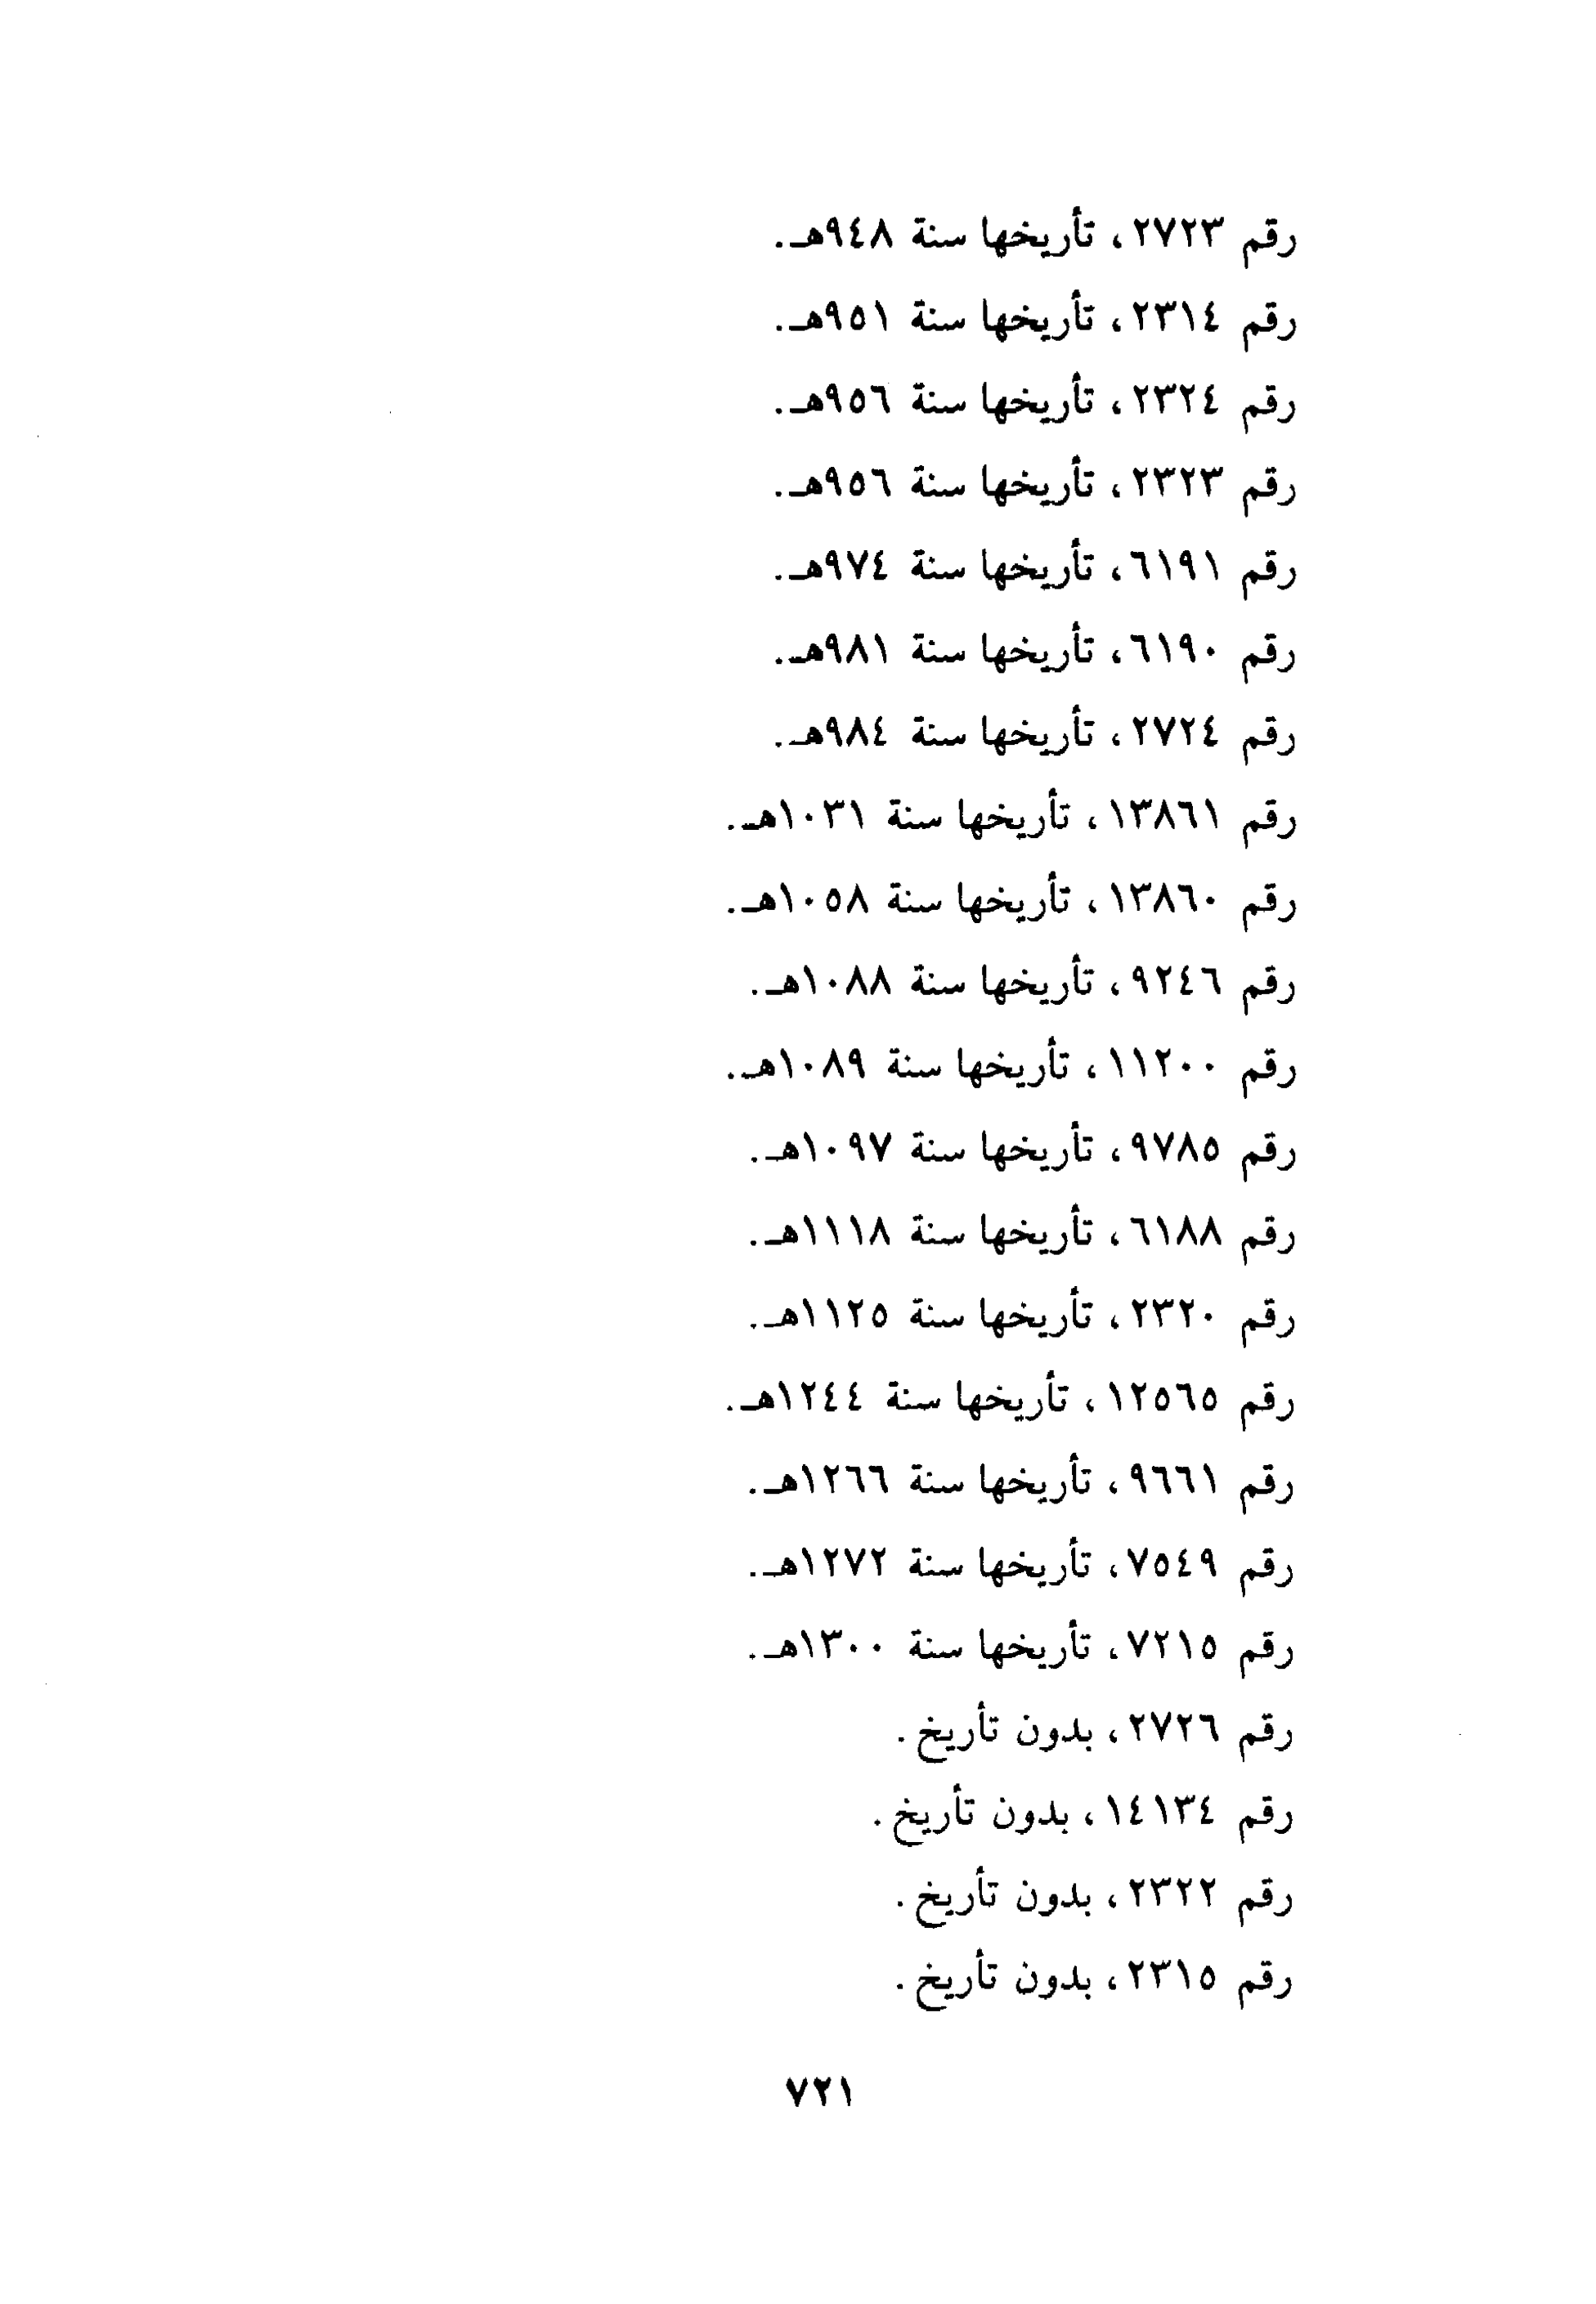 رقم ٢٧٢٣، تأريخها سنة ٩٤٨هـ.
رقم ٢٣١٤، تأريخها سنة ٩٥١هـ.
رقم ٢٣٢٤، تأريخها سنة ٩٥٦هـ.
رقم ٢٣٢٣، تأريخها سنة ٩٥٦هـ.
رقم ٦١٩١، تأريخها سنة ٩٧٤هـ.
رقم ٦١٩٠، تأريخها سنة ٩٨١هـ.
رقم ٢٧٢٤، تأريخها سنة ٩٨٤هـ.
رقم ١٣٨٦١، تأريخها سنة ١٠٣١هـ.
رقم ١٣٨٦٠، تأريخها سنة ١٠٥٨هـ.
رقم ٩٢٤٦، تأريخها سنة ١٠٨٨هـ.
رقم ١١٢٠٠، تأريخها سنة ١٠٨٩هـ.
رقم ٩٧٨٥، تأريخها سنة ١٠٩٧هـ.
رقم ٦١٨٨، تأريخها سنة ١١١٨هـ.
رقم ٢٣٢٠، تأريخها سنة ١١٢٥هـ.
رقم ١٢٥٦٥، تأريخها سنة ١٢٤٤هـ.
رقم ٩٦٦١، تأريخها سنة ١٢٦٦هـ.
رقم ٧٥٤٩، تأريخها سنة ١٢٧٢هـ.
رقم ٧٢١٥، تأريخها سنة ١٣٠٠هـ.
رقم ٢٧٢٦، بدون تأريخ.
رقم ١٤١٣٤، بدون تأريخ.
رقم ٢٣٢٢، بدون تأريخ.
رقم ٢٣١٥، بدون تأريخ.
٧٢١